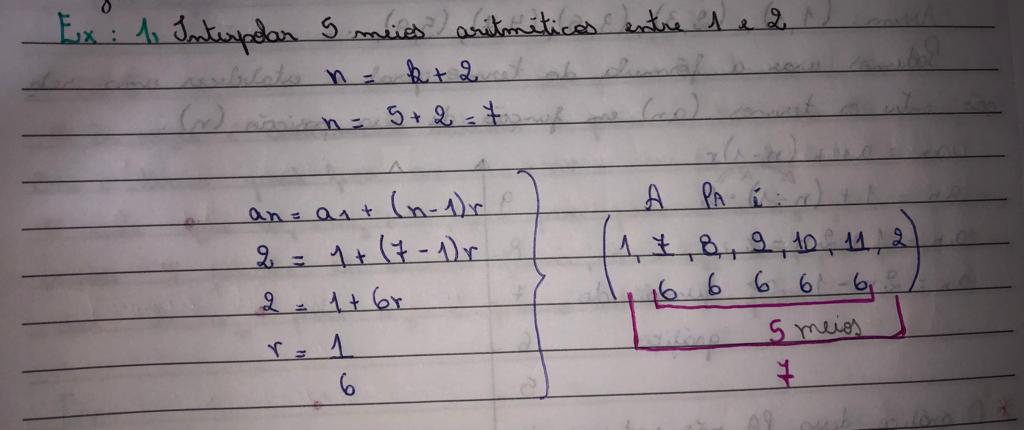 Ex: 1, Interpolar 5 meios aritméticos entre 1 e 2
n = k + 2
n = 5 + 2 = 7
an = a1 + (n-1)r
2 = 1 + (7-1)r
2 = 1 + 6r
r = 1
6
A PA é:
(1, 7, 8, 9, 10, 11, 2)
6 6 6 6 6
5 meios
7